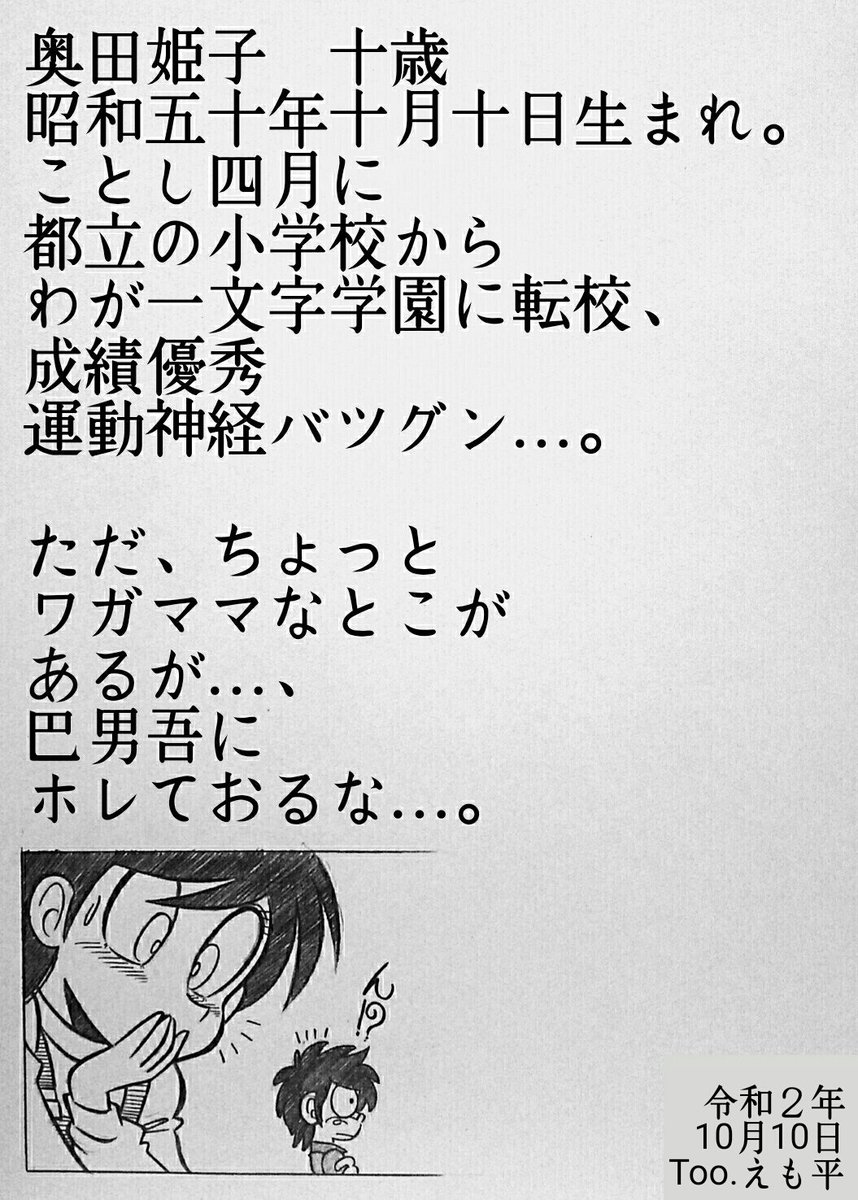 奥田姫子　十歳
昭和五十年十月十日生まれ。
ことし四月に
都立の小学校から
わが一文字学園に転校、
成績優秀
運動神経バツグン…。
ただ、ちょっと
ワガママなとこが
あるが…、
巴男吾に
ホレておるな…。
ん!?
令和２年
10月10日
Too.えも平